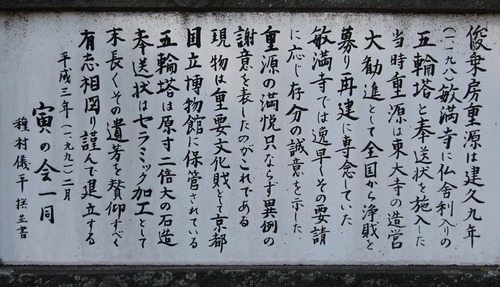 俊乗房重源は建久九年
(一一九八)敏満寺に仏舎利入りの
五輪塔と奉送状を施入した
当時重源は東大寺の造営
大勧進として全国から浄財を
募り再建に専念していた
敏満寺では逸早くその要請
に応じ存分の誠意を示した
重源の満悦只ならず異例の
謝意を表したのがこれである
現物は重要文化財として京都
国立博物館に保管されている
五輪塔は原寸二倍大の石造
奉送状はセラミック加工として
末長くその遺芳を賛仰すべく
有志相図り謹んで建立する
平成三年(一九九一)二月
寅の会一同
種村儀平 撰並書